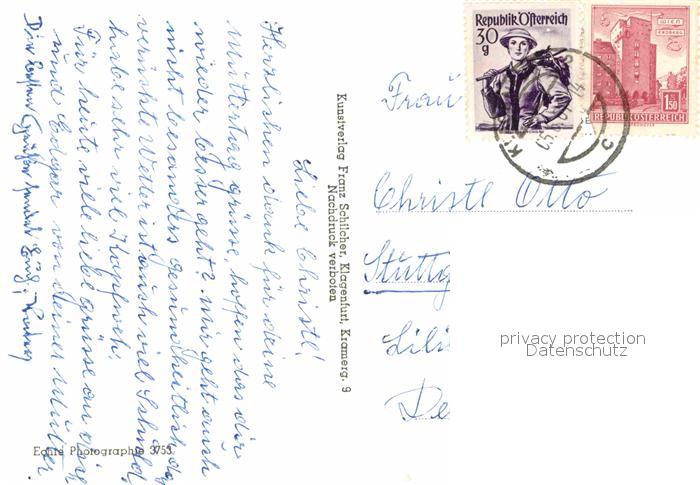 Liebe Christl!
Herzlichen dank für deine
Muttertag grüsse, hoffen das dir
wieder besser geht? mir geht auch
nicht besonders gesundheitlich das
verrückte Wetter ist auch viel Schuld,
habe sehr viel Kopfweh.
Für heute, viele liebe grüsse an dich
und Edgar von deiner Mutter.
Echte Photographie 3753
Kunstverlag Franz Schilcher, Klagenfurt, Kramerg. 9
Nachdruck verboten
Republik Österreich
30
g
WIEN
ERDBERG
1.50
REPUBLIK ÖSTERREICH
Frau
Christl Otto
Stuttg
Lili
De
privacy protection
Datenschutz